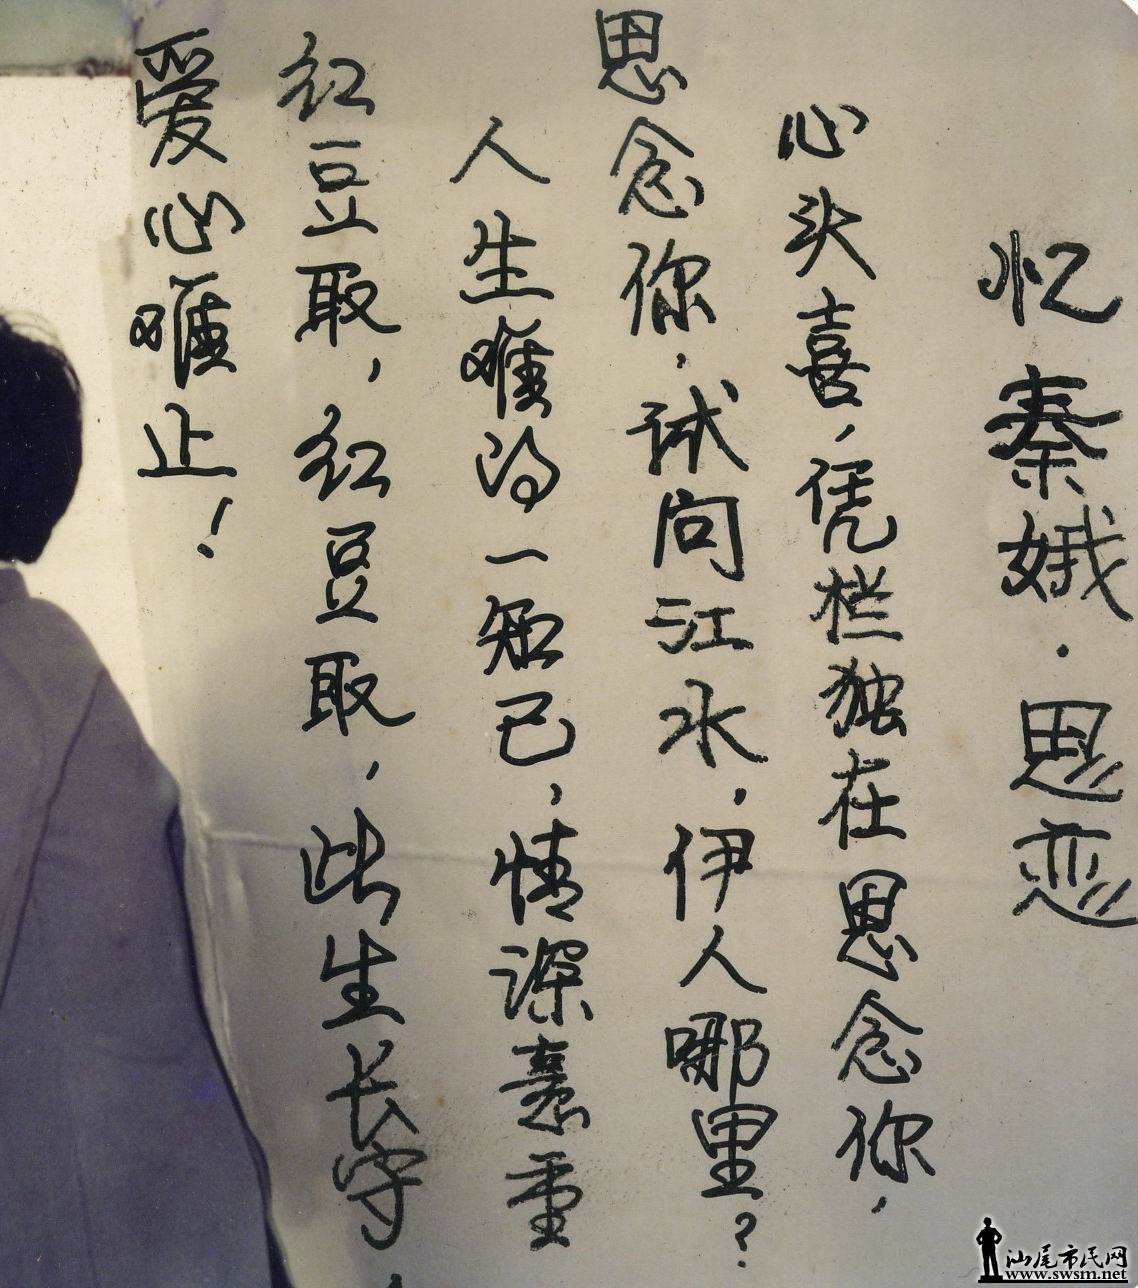 忆秦娥·思恋
心头喜，凭栏独在思念你，
思念你，试问江水，伊人哪里？
人生难得一知己，情深意重
红豆取，红豆取，此生长守，
爱心难止！
汕尾市民网
www.swsm.net